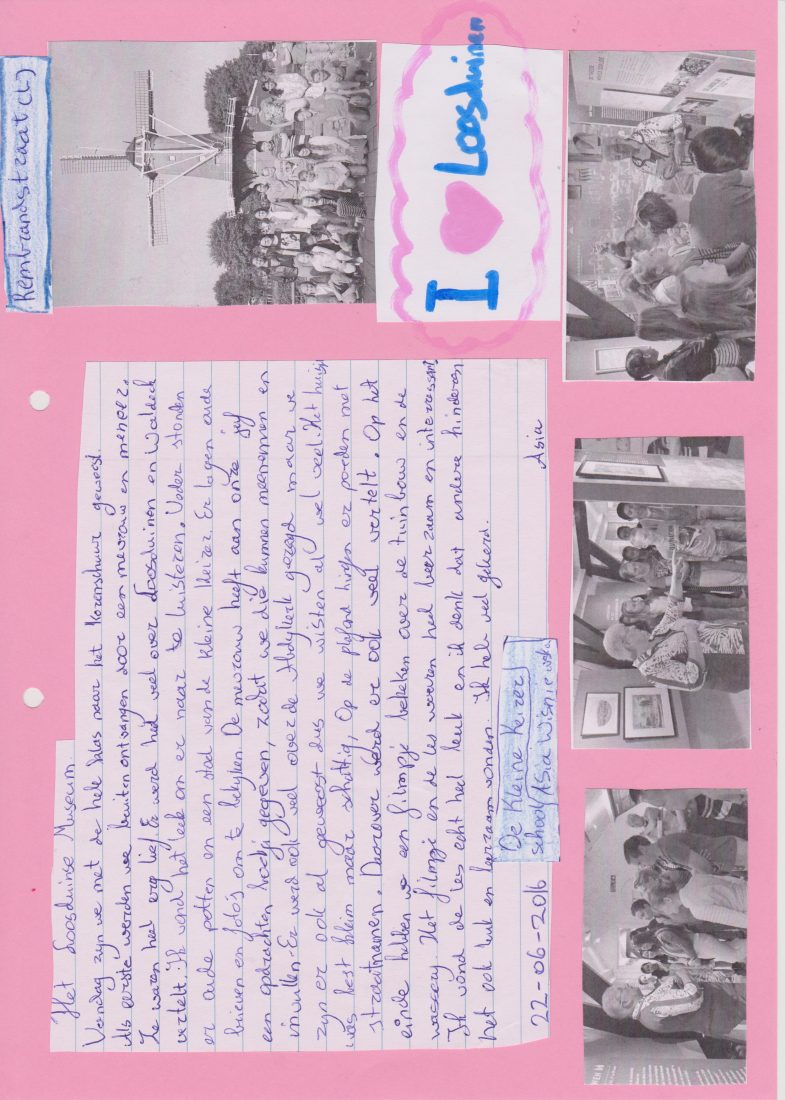 Rembrandtstraat (L)
I Loosduinen
Het Loosduinse Museum
Vandaag zijn we met de hele klas naar het Korenschuur geweest.
Als eerste werden we buiten ontvangen door een mevrouw en meneer.
Ze waren heel erg lief. Er werd heel veel over Loosduinen en Waldeck
vertelt. Ik vond het leuk om er naar te luisteren. Verder stonden
er oude potten en een stad van de kleine Keizer. Er lagen oude
brieven en foto's om te bekijken. De mevrouw heeft aan onze juf
een opdrachten boekje gegeven, zodat we die kunnen meenemen en
invullen. Er werd ook veel over de Abdijkerk gezegd maar we
zijn er ook al geweest dus we wisten al wel veel. Het huisje
was best klein maar schattig. Op de plafond hingen er borden met
straatnamen. Daarover werd er ook veel vertelt. Op het
einde hebben we een filmpje bekeken over de tuinbouw en de
wassery. Het filmpje en de les waaren heel leerzaam en interessant
Ik vond de les echt heel leuk en ik denk dat andere kinderen
het ook leuk en leerzaam vonden. Ik heb veel geleerd.
22-06-2016 Asia
De Kleine Keizer
school/Asia Wisniewska